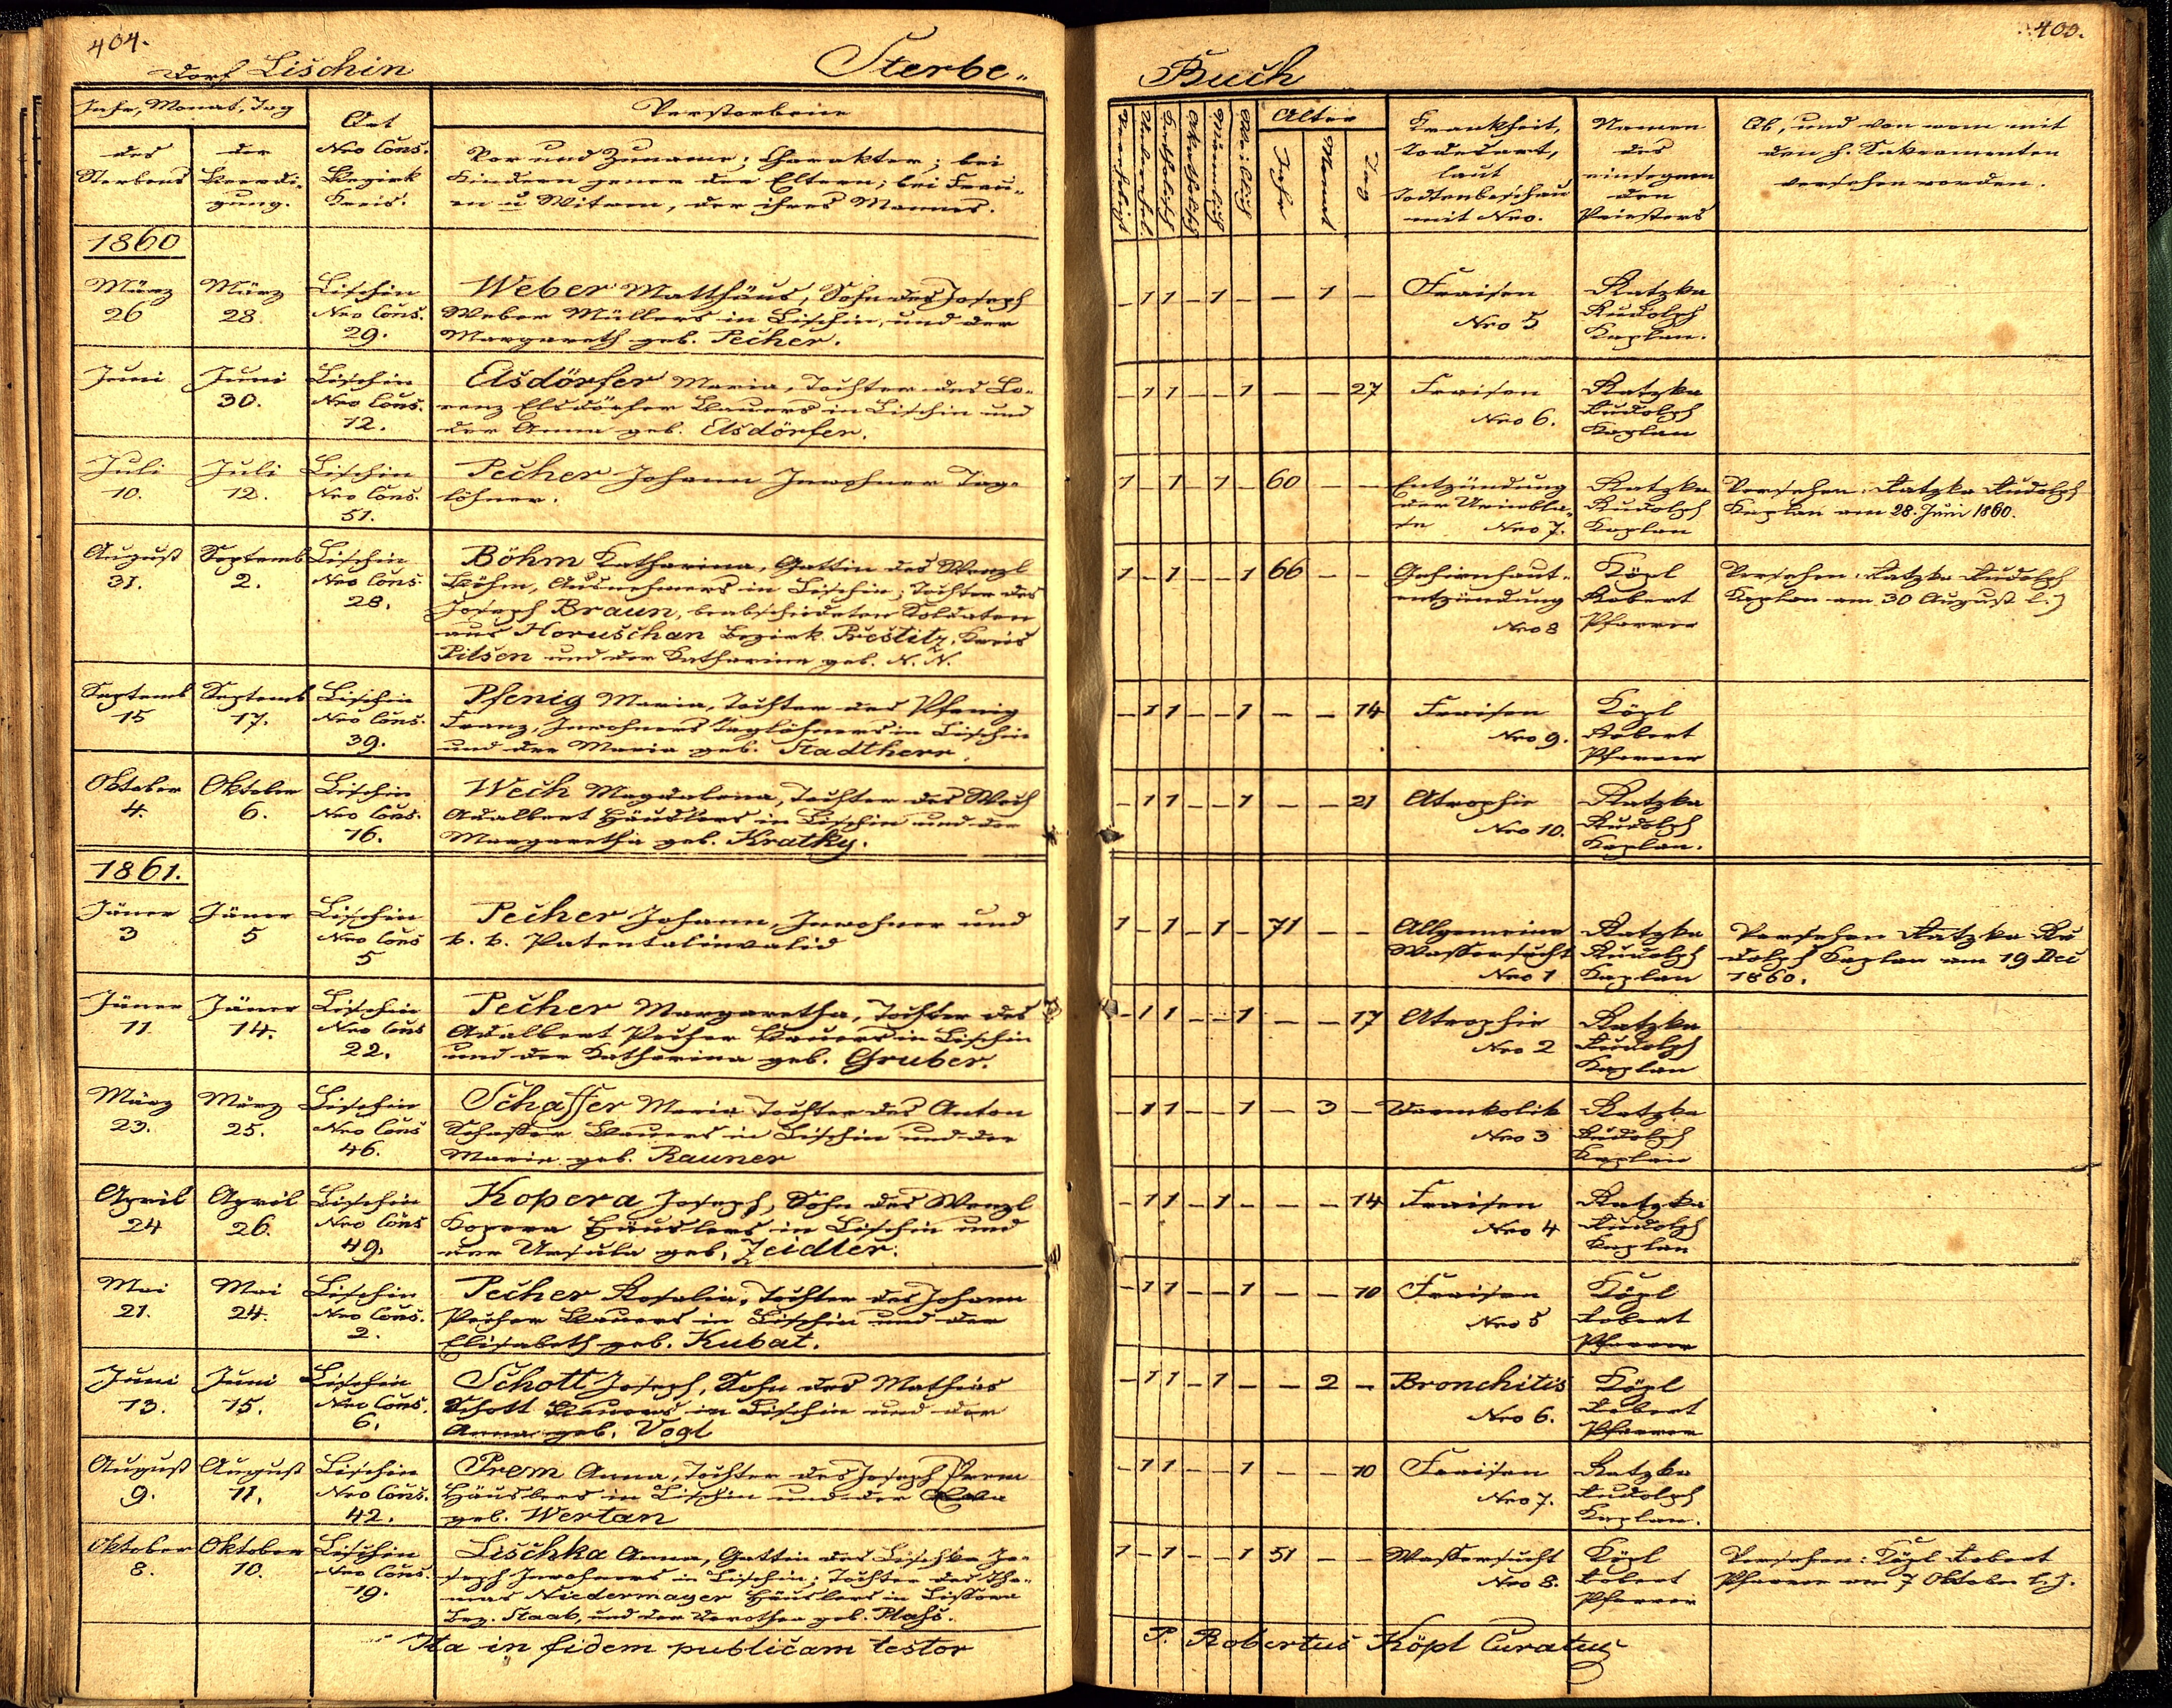 404.
Dorf Lischin
Sterbe-
Jahr, Monat, Tag
des Sterbens
der Beerdigung.
Ort
Nro Cons.
Bezirk
Kreis.
Verstorbene
Vor und Zuname; Charakter; bei
Kindern jener der Eltern; bei Frau-
en u Witwen, der ihres Mannes.
1860
März 26
März 28.
Lischin Nro Cons. 29.
Weber Matthäus, Sohn des Joseph
Weber Müllers in Lischin, und der
Margareth geb. Pecher.
Juni
Juni 30.
Lischin Nro Cons. 12.
Elsdörfer Maria, Tochter des Lo-
renz Elsdörfer Bauers in Lischin und
der Anna geb. Elsdörfer.
Juli 10.
Juli 12.
Lischin Nro Cons. 51.
Pecher Johann Inwohner Tag-
löhner.
August 31.
Septemb 2.
Lischin Nro Cons. 28.
Böhm Katharina, Gattin des Wenzl
Böhm, Ausnehmers in Lischin; Tochter des
Joseph Braun, beabschiedeten Soldaten
aus Horuschan Bezirk Prestitz, Kreis
Pilsen und der Katharina geb. N. N.
Septemb 15
Septemb 17.
Lischin Nro Cons. 39.
Pfenig Maria, Tochter des Pfenig
Franz, Inwohners Taglöhners in Lischin
und der Maria geb. Stadtherr.
Oktober 4.
Oktober 6.
Lischin Nro Cons. 16.
Wech Magdalena, Tochter des Wech
Adalbert Häuslers in Lischin und der
Margaretha geb. Kratky.
1861.
Jäner 3
Jäner 5
Lischin Nro Cons 5
Pecher Johann, Inwohner und
k. k. Patentalinvalid
Jäner 11.
Jäner 14.
Lischin Nro Cons 22.
Pecher Margaretha, Tochter des
Adalbert Pecher Bauers in Lischin
und der Katharina geb. Gruber.
März 23.
März 25.
Lischin Nro Cons 46.
Schaffer Maria Tochter des Anton
Schaffer Bauers in Lischin und der
Maria geb. Rauner
April 24
April 26.
Lischin Nro Cons 49.
Kopera Joseph, Sohn des Wenzl
Kopera Häuslers in Lischin und
der Ursula geb. Zeidler.
Mai 21.
Mai 24.
Lischin Nro Cons. 2.
Pecher Rosalia, Tochter des Johann
Pecher Bauers in Lischin und der
Elisabeth geb. Kubat.
Juni 13.
Juni 15.
Lischin Nro Cons. 6.
Schott Joseph, Sohn des Mathias
Schott Bauers in Lischin und der
Anna geb. Vogl
August 9.
August 11.
Lischin Nro Cons. 42.
Prem Anna, Tochter des Joseph Prem
Häuslers in Lischin und der Eva
geb. Wertan
Oktober 8.
Oktober 10.
Lischin Nro Cons. 19.
Lischka Anna, Gattin des Lischka Jo-
seph Inwohners in Lischin; Tochter des Tho-
mas Niedermayer Häuslers in Lissowa
Bez. Staab, und der Dorothea geb. Plahs.
Ita in fidem publicam testor
Buch
Alter
Jahr
Monat
Tag
Krankheit,
Todesart,
laut
Todtenbeschau
mit Nro.
Namen
des
einsegnen
den
Priesters
Ob, und von wem mit
den h. Sakramenten
versehen worden.
- 1 1 - 1 - - 1 - Fraisen Nro 5 Katzka Rudolph Kaplan.
- 1 1 - - 1 - - 27 Fraisen Nro 6. Katzka Rudolph Kaplan
1 - 1 - 1 - 60 - - Entzündung der Urinbla- se Nro 7. Katzka Rudolph Kaplan
Versehen: Katzka Rudolph
Kaplan am 28. Juni 1860.
1 - 1 - - 1 66 - - Gehirnhaut- entzündung Nro 8 Köpl Robert Pfarrer
Versehen: Katzka Rudolph
Kaplan am 30 August l. J
- 1 1 - - 1 - - 14 Fraisen Nro 9. Köpl Robert Pfarrer
- 1 1 - - 1 - - 21 Atrophie Nro 10. Katzka Rudolph Kaplan.
1 - 1 - 1 - 71 - - Allgemeine Wassersucht Nro 1 Katzka Rudolph Kaplan
Versehen Katzka Ru
dolph Kaplan am 19 Dec
1860.
- 1 1 - - 1 - - 17 Atrophie Nro 2 Katzka Rudolph Kaplan
- 1 1 - - 1 - 3 - Darmkolik Nro 3 Katzka Rudolph Kaplan
- 1 1 - 1 - - - 14 Fraisen Nro 4 Katzka Rudolph Kaplan
- 1 1 - - 1 - - 10 Fraisen Nro 5 Köpl Robert Pfarrer
- 1 1 - 1 - - 2 - Bronchitis Nro 6. Köpl Robert Pfarrer
- 1 1 - - 1 - - 10 Fraisen Nro 7. Katzka Rudolph Kaplan.
1 - 1 - - 1 51 - - Wassersucht Nro 8. Köpl Robert Pfarrer
Versehen: Köpl Robert
Pfarrer am 7 Oktober l. J.
P. Robertus Köpl Curatus